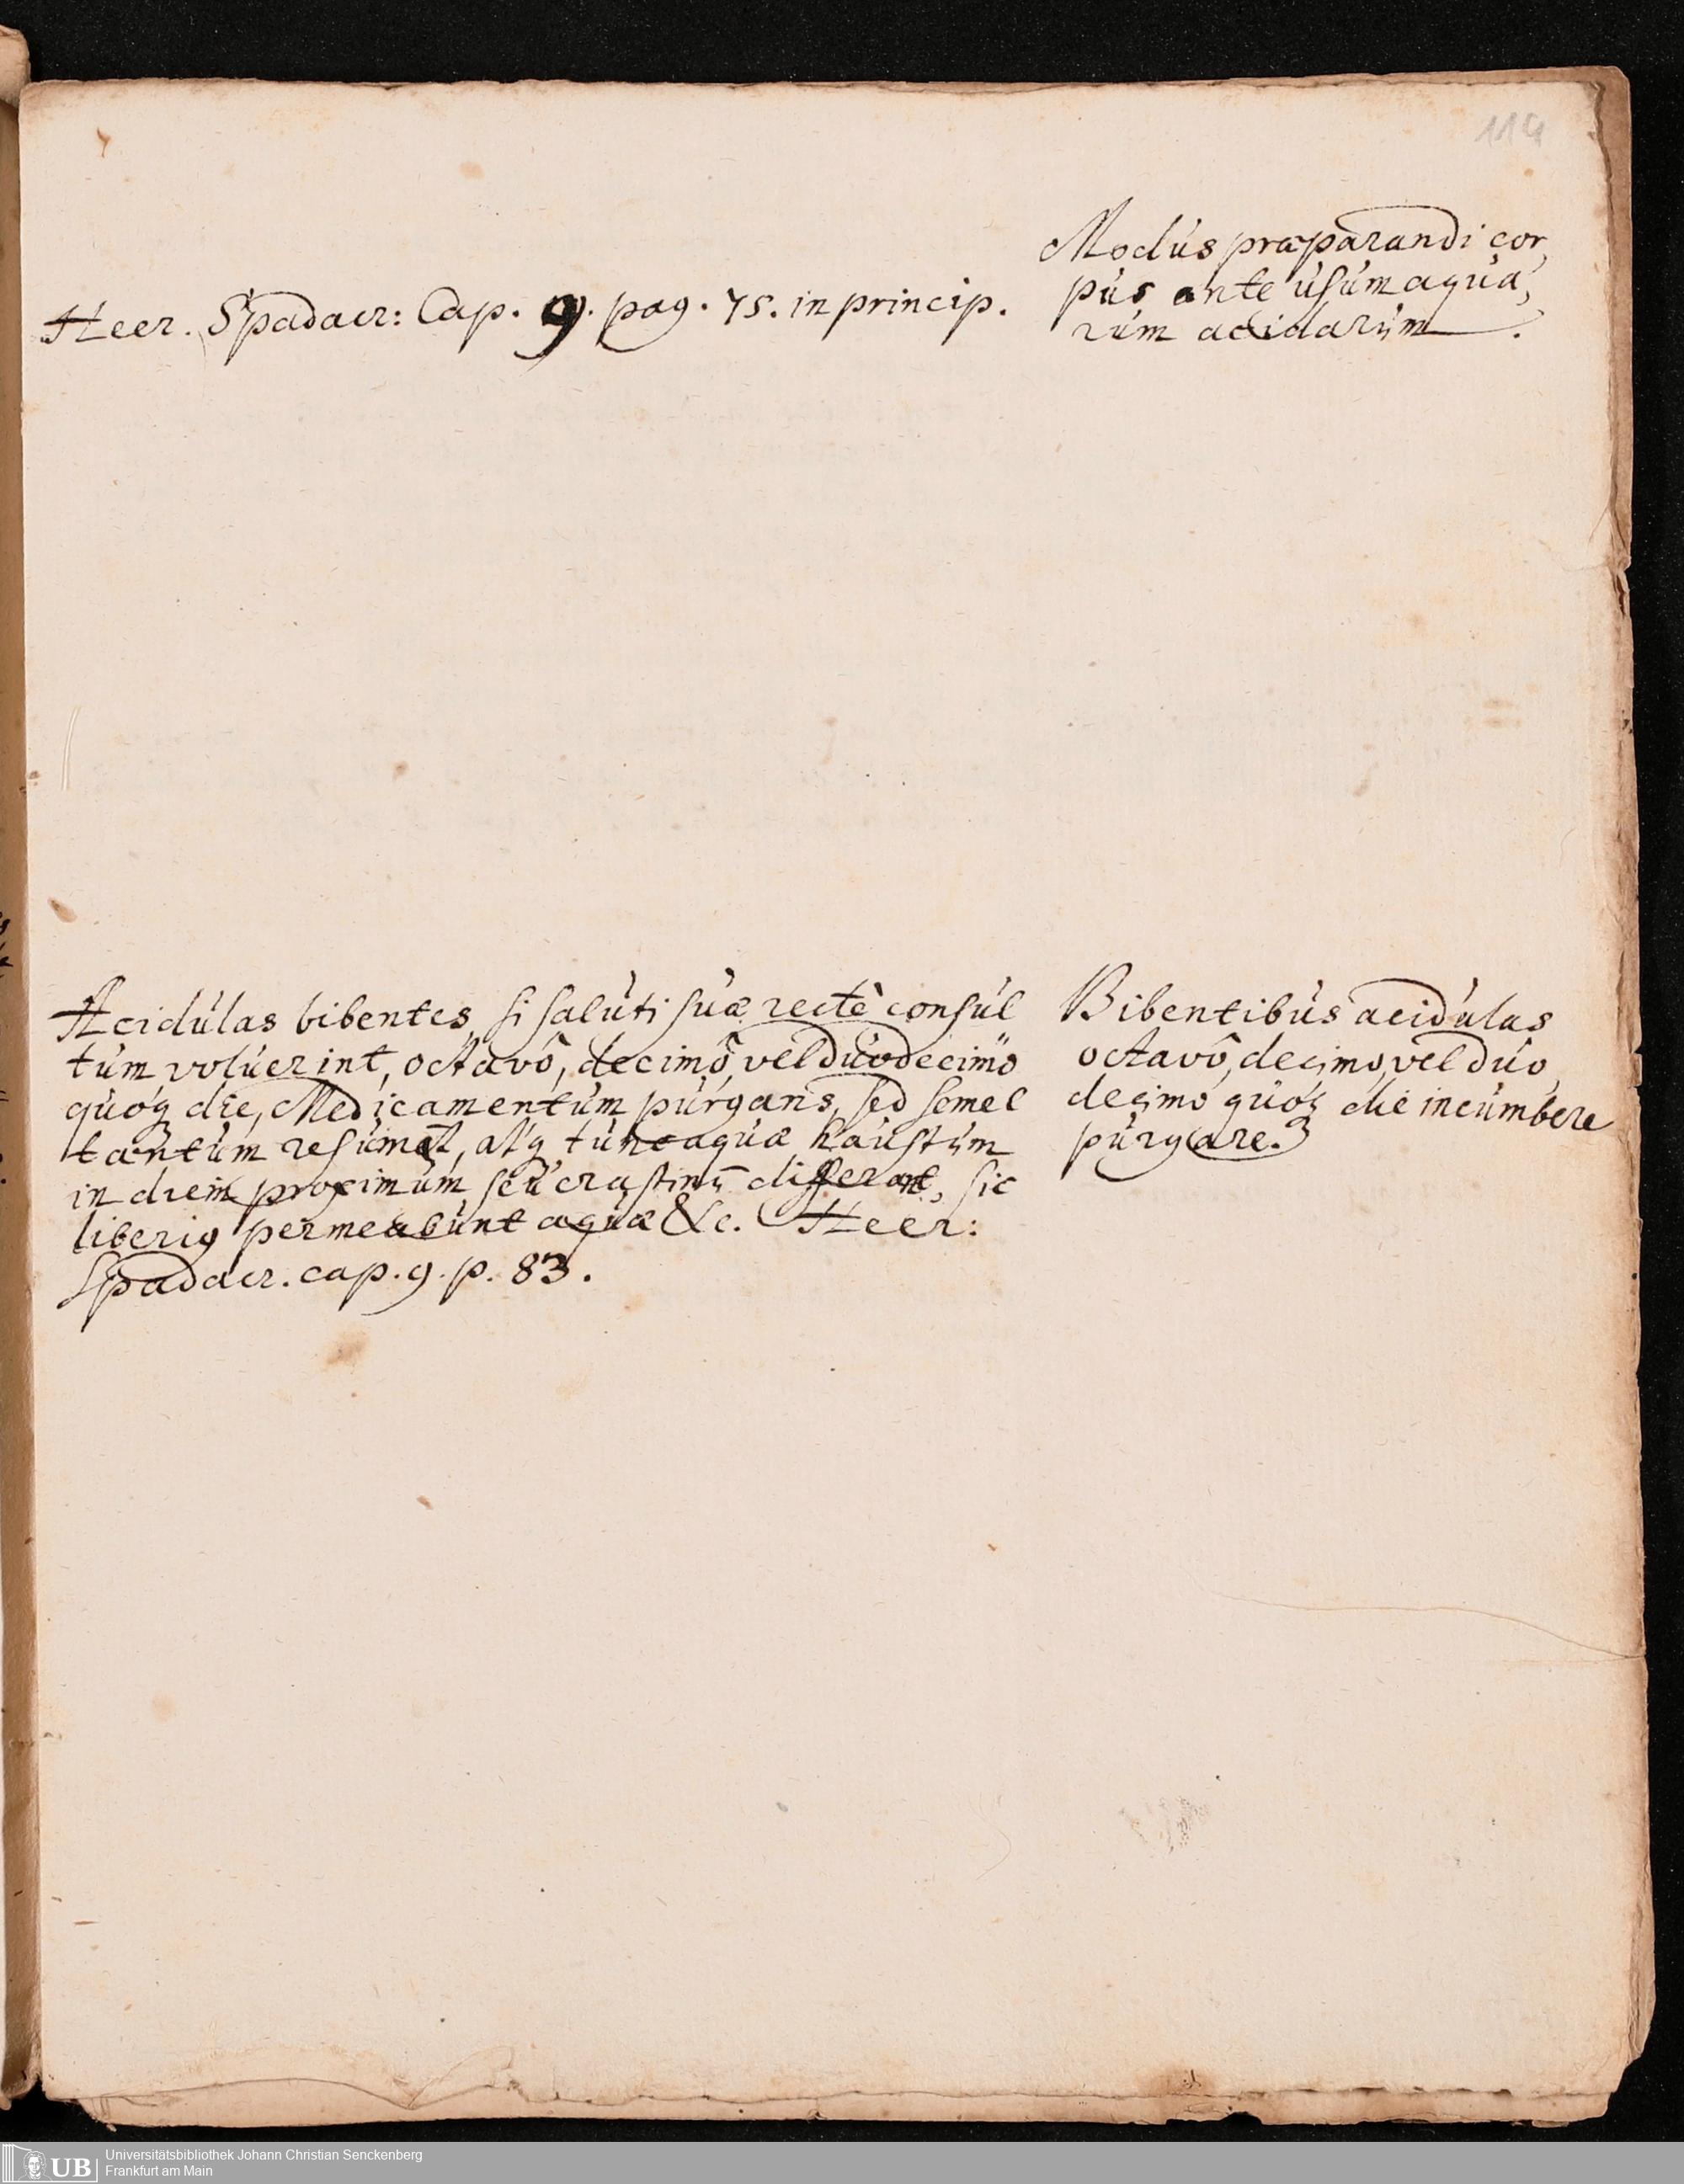 114
Modus præparandi cor,
pus ante usum aqua,
rum acidarum.
Heer. Spadacr: Cap. 9. pag. 75. in princip.
Acidulas bibentes, si saluti suæ rectè consul
tum voluerint, octavô, decimô, vel duodecimo
quoq; die, Medicamentum purgans, sed semel
tantum resumat, atq; tunc aquæ haustum
in diem proximum, seu crastinū differant, sic
liberiꝰ permeabunt aquæ &c. Heer:
Spadacr. cap. 9. p. 83.
Bibentibus acidulas
octavô, decimo, vel duo,
decimo quoq; die incumbere
purgare.
UB
Universitätsbibliothek Johann Christian Senckenberg
Frankfurt am Main